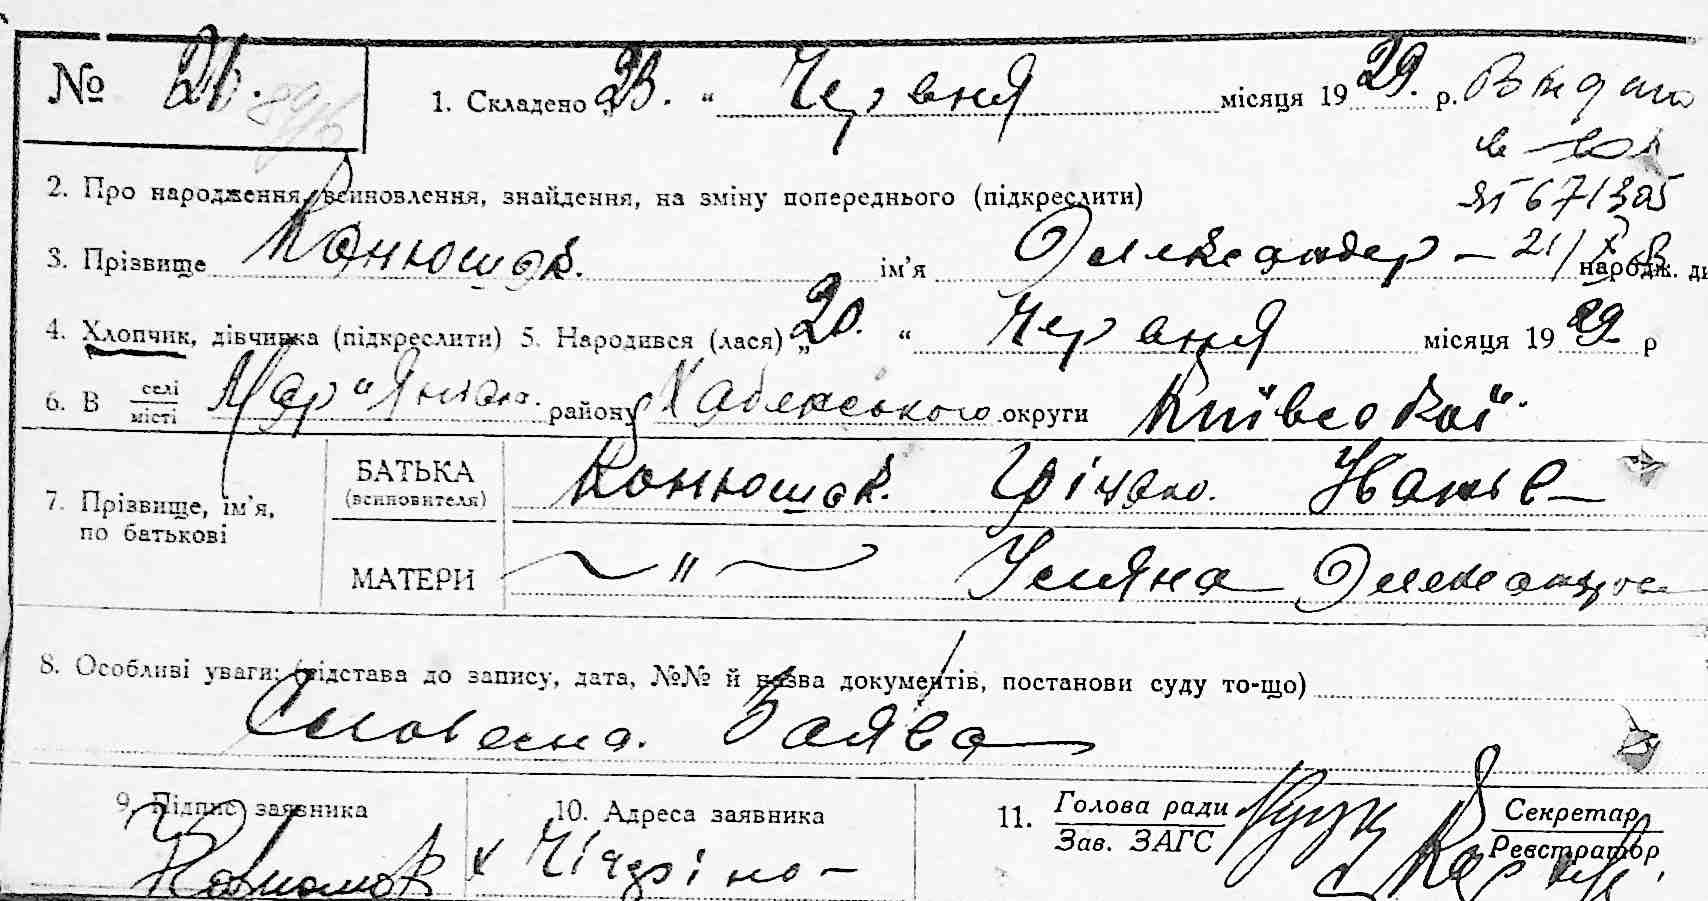 № 21.
1. Складено „23. “ Червня місяця 1929. р. Видано
ЯГ 671305
2. Про народження, всиновлення, знайдення, на зміну попереднього (підкреслити)
3. Прізвище Конюшок. ім'я Олександер – 21/X народж.
4. Хлопчик, дівчинка (підкреслити) 5. Народився (лася) „20. “ Червня місяця 1929 р
6. В селі/місті Мар"янівка. району Хабенського округи Київської.
7. Прізвище, ім'я, по батькові
БАТЬКА (всиновителя) Конюшок. Гріцко. Іванов–
МАТЕРИ — " — Уляна Олександров
8. Особливі уваги: (підстава до запису, дата, №№ й назва документів, постанови суду то-що)
Словесна. Заява
9. Підпис заявника 10. Адреса заявника 11. Голова ради / Зав. ЗАГС Секретар / Реєстратор